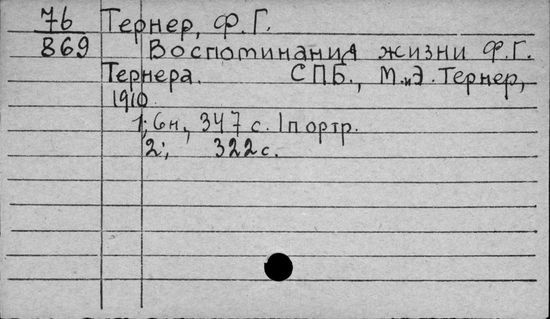 76 Тернер, Ф.Г.
869 Воспоминания жизни Ф.Г.
Тернера. СПБ., М.иЭ. Тернер,
1910.
1; 6н., 347 с. 1портр.
2; 322с.